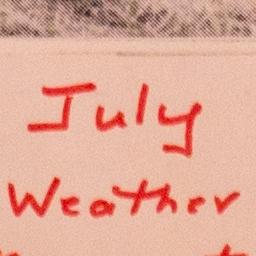 July
Weather